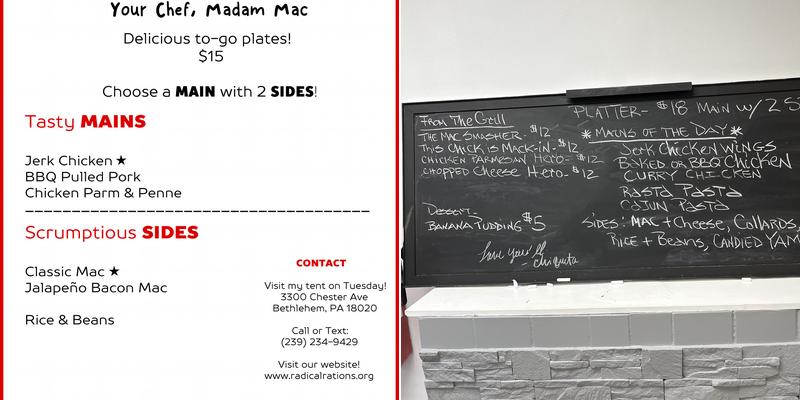 Your Chef, Madam Mac
Delicious to-go plates!
$15
Choose a MAIN with 2 SIDES!
Tasty MAINS
Jerk Chicken ★
BBQ Pulled Pork
Chicken Parm & Penne
Scrumptious SIDES
Classic Mac ★
Jalapeño Bacon Mac
Rice & Beans
CONTACT
Visit my tent on Tuesday!
3300 Chester Ave
Bethlehem, PA 18020
Call or Text:
(239) 234-9429
Visit our website!
www.radicalrations.org
From The Grill
THE MAC SMASHER - $12
This Chick is Mack-in - $12
CHICKEN PARMESAN Hero - $12
CHOPPED Cheese Hero - $12
Dessert
BANANA PUDDING $5
love you'll
- Chiquita
PLATTER - $18 MAIN w/ 2 S
*MAINS OF THE DAY*
Jerk Chicken WINGS
BAKED OR BBQ CHICKEN
CURRY CHICKEN
RASTA PASTA
CAJUN PASTA
SIDES: MAC + Cheese, Collards,
RICE + Beans, CANDIED YAM